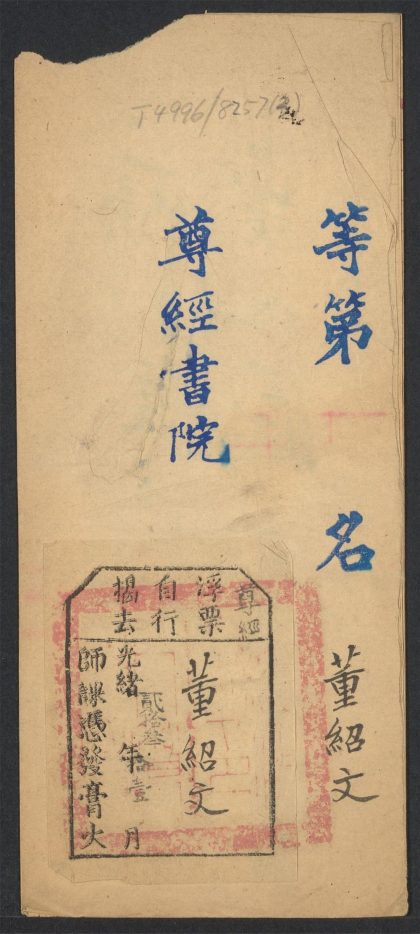 T4996/8257(2)
等第 名 董紹文
尊經書院
尊經
浮票
自行
揭去
董紹文
光緒貳拾叁年拾壹月
師課憑發膏火